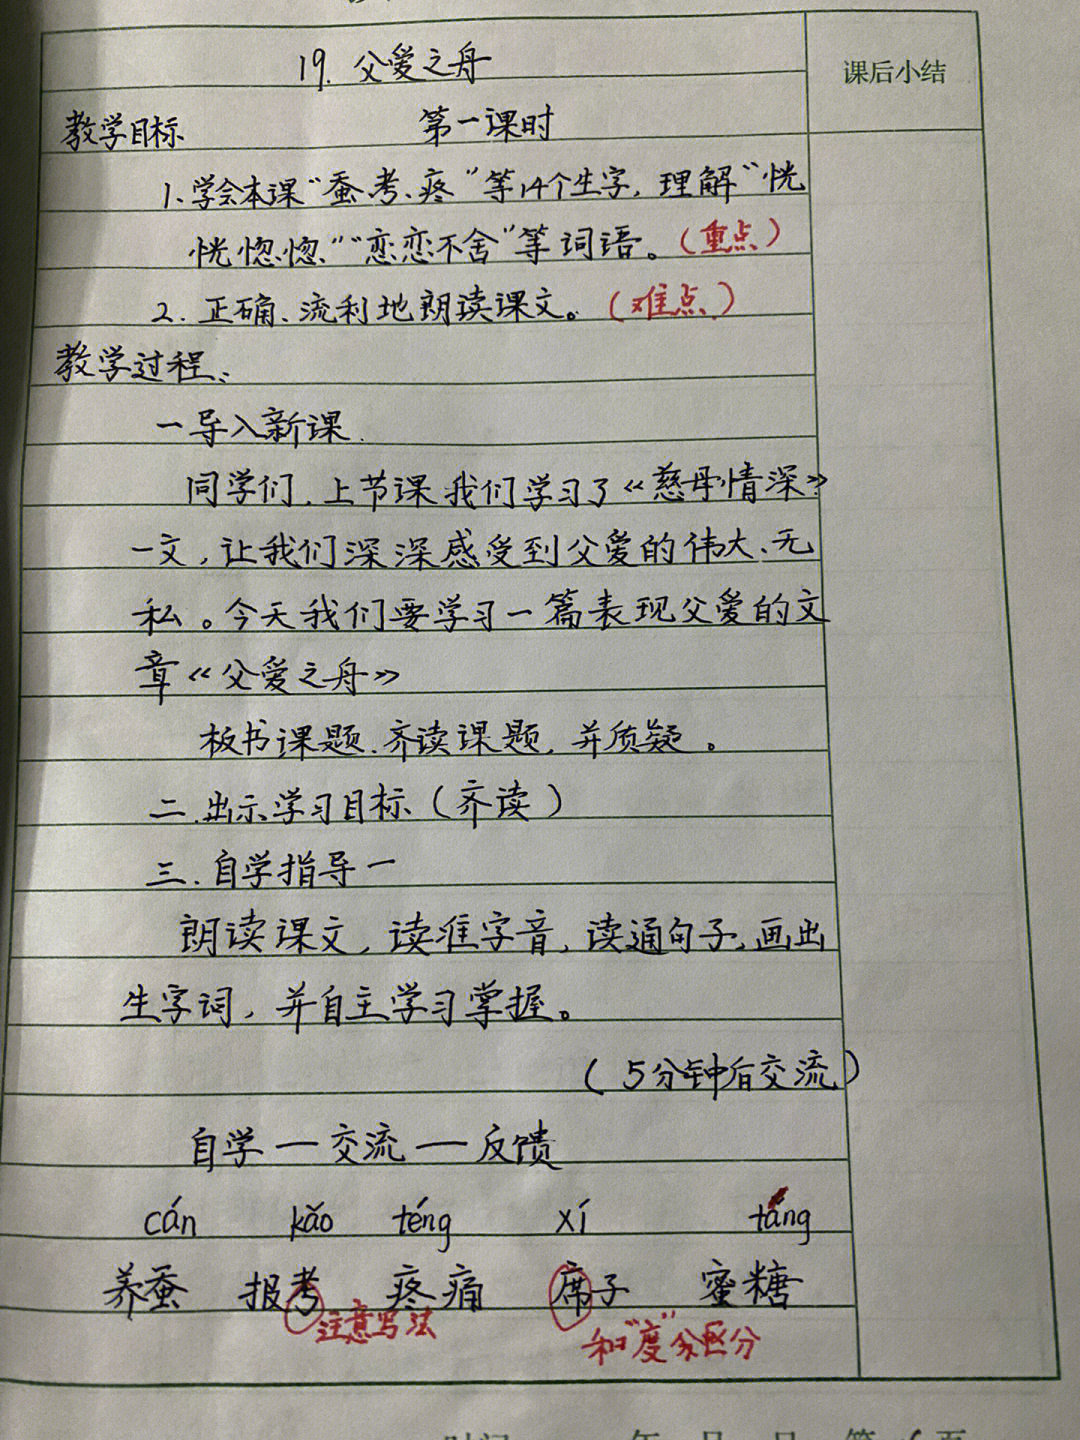 19. 父爱之舟
课后小结
教学目标
第一课时
1、学会本课“蚕、考、疼”等14个生字，理解“恍
恍惚惚”“恋恋不舍”等词语。(重点)
2. 正确、流利地朗读课文。(难点)
教学过程：
一导入新课.
同学们，上节课我们学习了《慈母情深》
一文，让我们深深感受到父爱的伟大、无
私。今天我们要学习一篇表现父爱的文
章《父爱之舟》
板书课题.齐读课题，并质疑。
二.出示学习目标(齐读)
三.自学指导一
朗读课文，读准字音，读通句子，画出
生字词，并自主学习掌握。
(5分钟后交流)
自学一交流一反馈
cán kǎo téng xí táng
养蚕 报考 疼痛 席子 蜜糖
注意写法
和“度”分区分